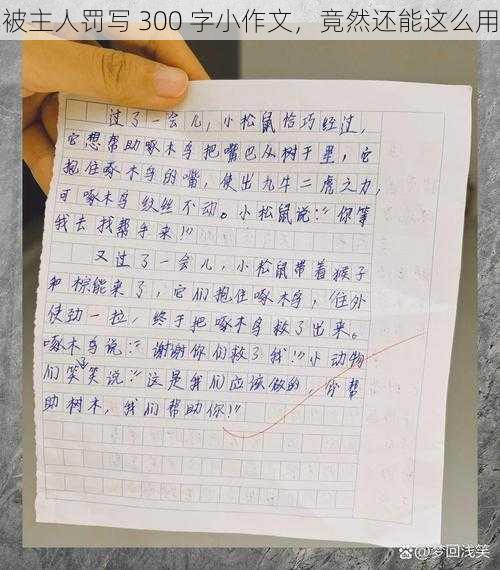 被主人罚写 300 字小作文，竟然还能这么用
过了一会儿，小松鼠恰巧经过，
它想帮助啄木鸟把嘴巴从树干里，它
抱住啄木鸟的嘴，使出九牛二虎之力，
可啄木鸟纹丝不动。小松鼠说：“你等
我去找帮手来！”
又过了一会儿，小松鼠带着猴子
和棕能来了，它们抱住啄木鸟，往外
使劲一拉，终于把啄木鸟救了出来。
啄木鸟说：“谢谢你们救了我！”小动物
们笑笑说：“这是我们应该做的，你帮
助树木，我们帮助你！”
@梦回浅笑